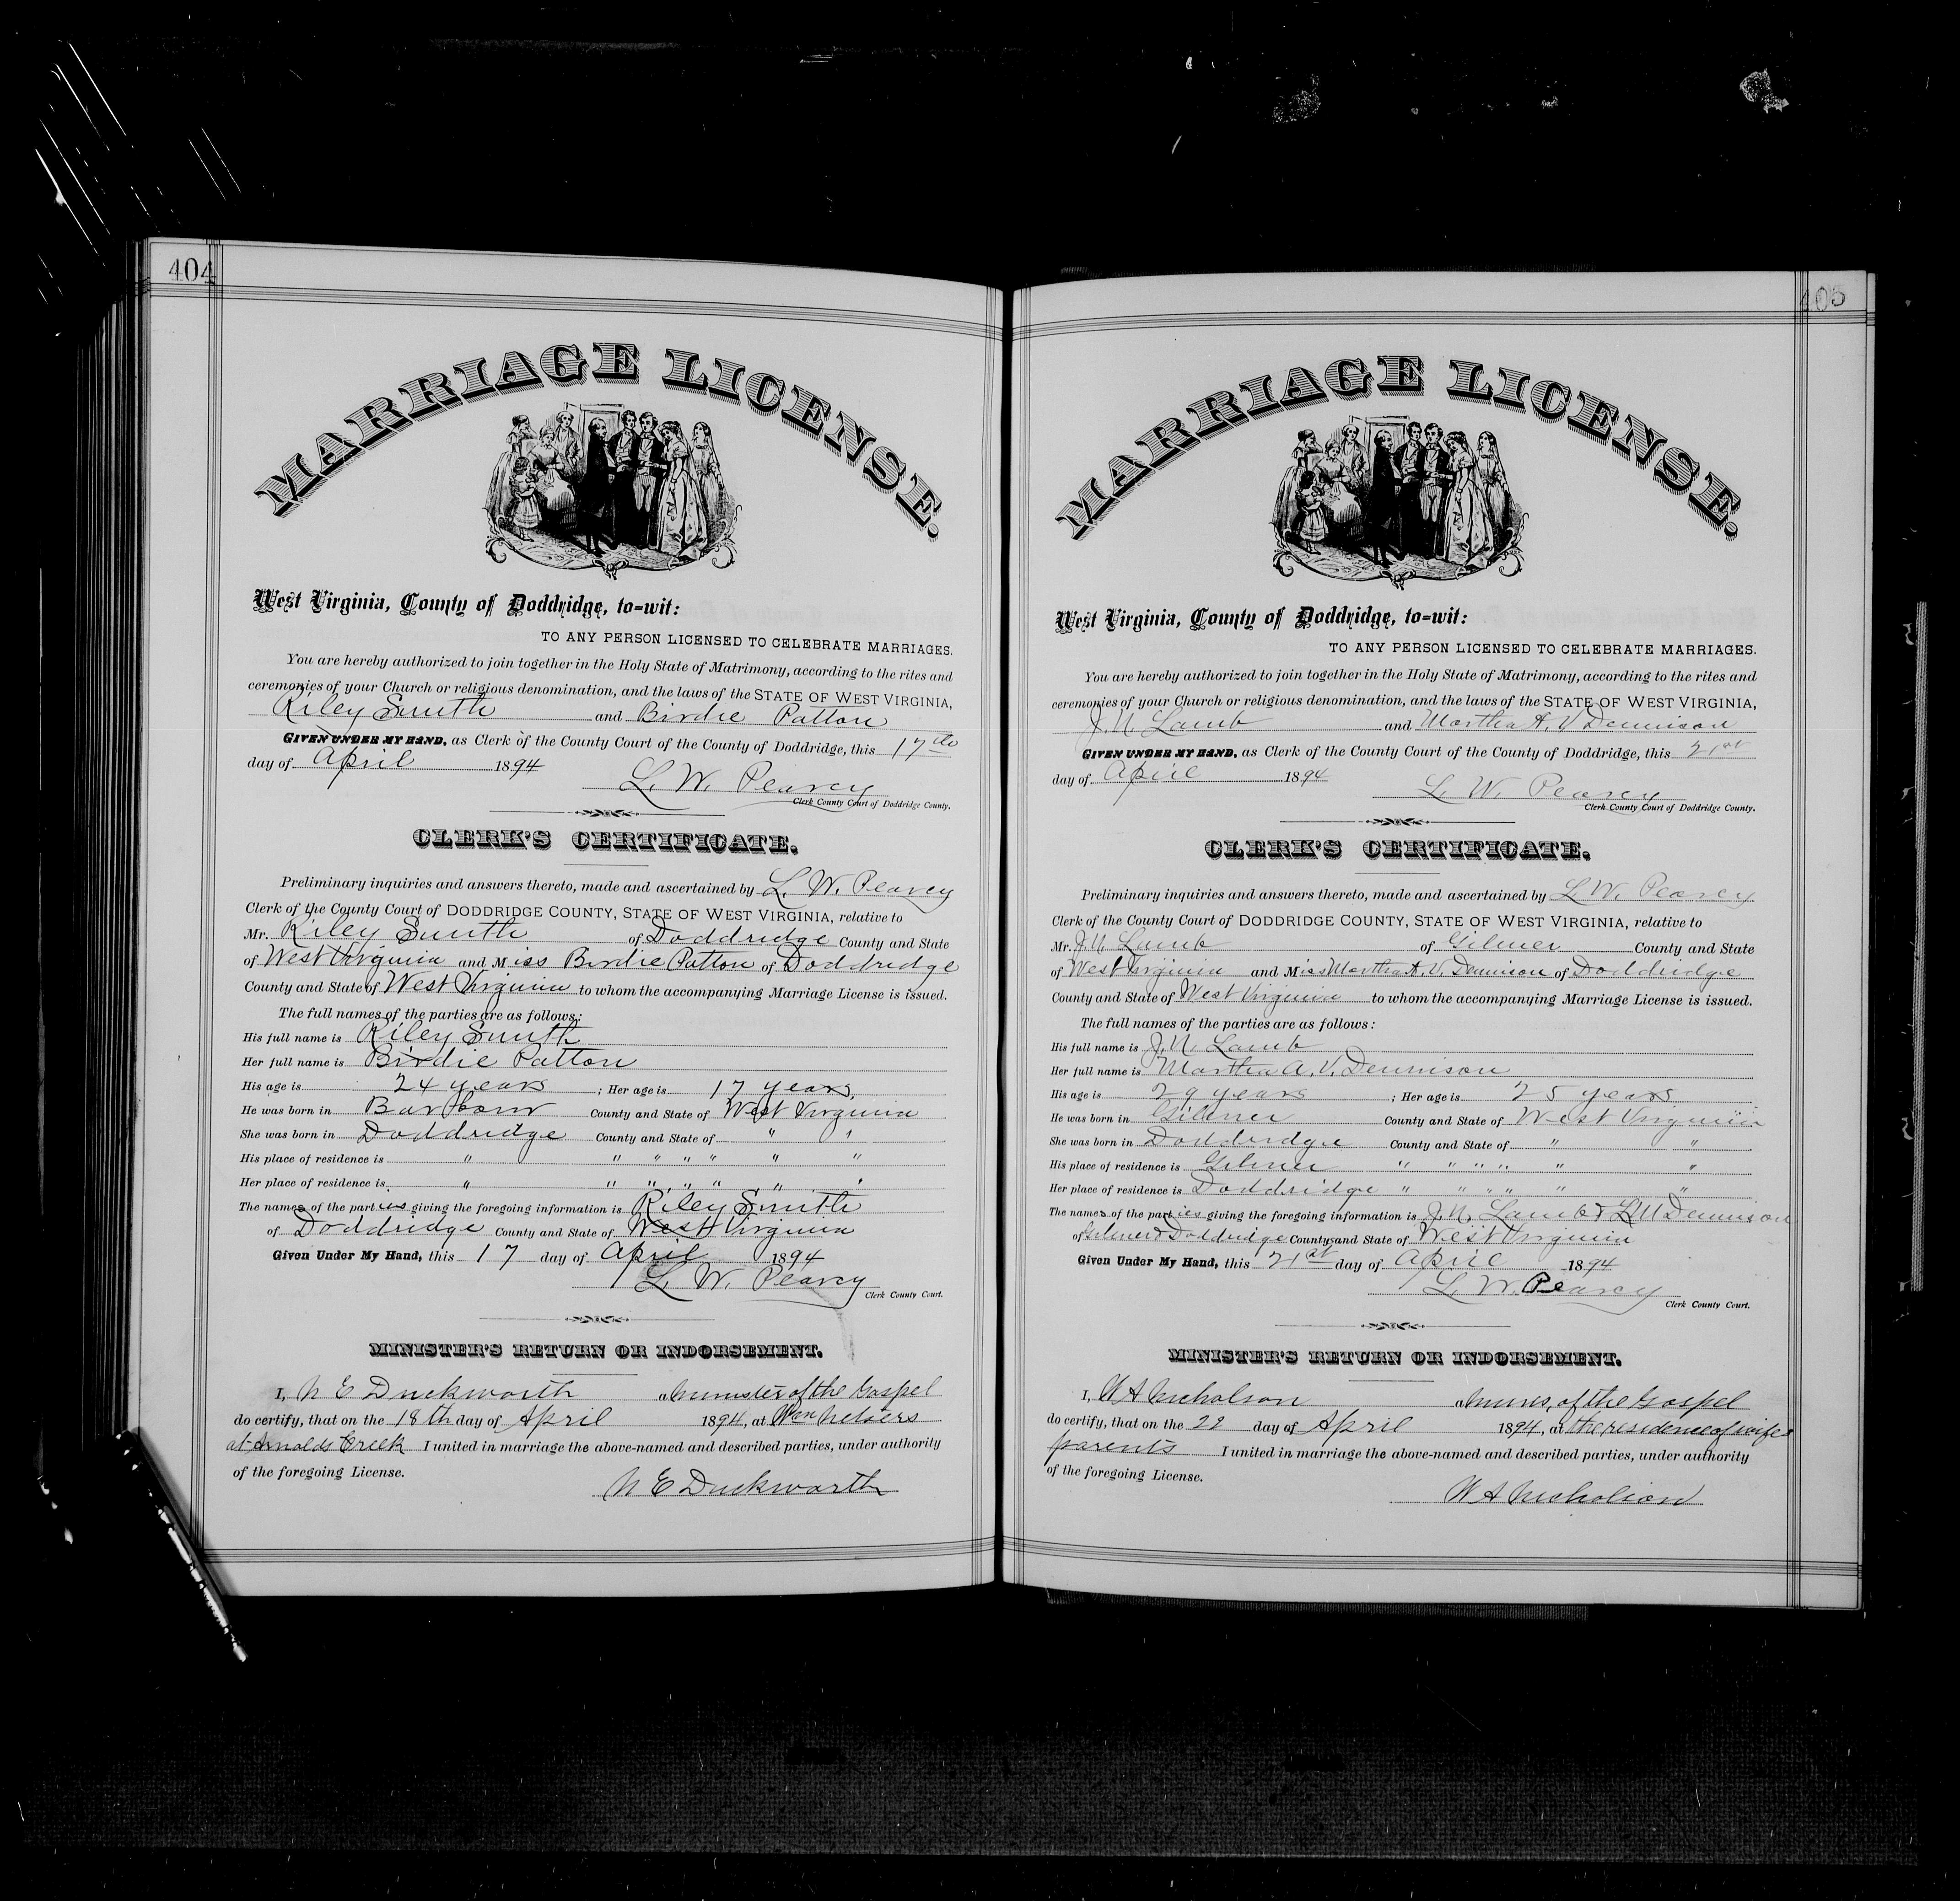 404
MARRIAGE LICENSE.
West Virginia, County of Doddridge, to=wit:
TO ANY PERSON LICENSED TO CELEBRATE MARRIAGES.
You are hereby authorized to join together in the Holy State of Matrimony, according to the rites and
ceremonies of your Church or religious denomination, and the laws of the STATE OF WEST VIRGINIA,
Riley Smith and Birdie Patton
GIVEN UNDER MY HAND, as Clerk of the County Court of the County of Doddridge, this 17th
day of April 1894
L. W. Pearcy
Clerk County Court of Doddridge County.
CLERK'S CERTIFICATE.
Preliminary inquiries and answers thereto, made and ascertained by L. W. Pearcy
Clerk of the County Court of DODDRIDGE COUNTY, STATE OF WEST VIRGINIA, relative to
Mr. Riley Smith of Doddridge County and State
of West Virginia and Miss Birdie Patton of Doddridge
County and State of West Virginia to whom the accompanying Marriage License is issued.
The full names of the parties are as follows:
His full name is Riley Smith
Her full name is Birdie Patton
His age is 24 years ; Her age is 17 years
He was born in Barbour County and State of West Virginia
She was born in Doddridge County and State of " "
His place of residence is " " " " " " "
Her place of residence is " " " " " " "
The names of the parties giving the foregoing information is Riley Smith
of Doddridge County and State of West Virginia
Given Under My Hand, this 17 day of April 1894
L. W. Pearcy
Clerk County Court.
MINISTER'S RETURN OR INDORSEMENT.
I, N E Duckworth a minister of the Gospel
do certify, that on the 18th day of April 1894, at
at Arnolds Creek I united in marriage the above-named and described parties, under authority
of the foregoing License.
N E Duckworth
405
MARRIAGE LICENSE.
West Virginia, County of Doddridge, to=wit:
TO ANY PERSON LICENSED TO CELEBRATE MARRIAGES.
You are hereby authorized to join together in the Holy State of Matrimony, according to the rites and
ceremonies of your Church or religious denomination, and the laws of the STATE OF WEST VIRGINIA,
J. N. Lamb and Martha A. V Dennison
GIVEN UNDER MY HAND, as Clerk of the County Court of the County of Doddridge, this 21st
day of April 1894
L. W. Pearcy
Clerk County Court of Doddridge County.
CLERK'S CERTIFICATE.
Preliminary inquiries and answers thereto, made and ascertained by L. W. Pearcy
Clerk of the County Court of DODDRIDGE COUNTY, STATE OF WEST VIRGINIA, relative to
Mr. J. N. Lamb of Gilmer County and State
of West Virginia and Miss Martha A. V. Dennison of Doddridge
County and State of West Virginia to whom the accompanying Marriage License is issued.
The full names of the parties are as follows:
His full name is J. N. Lamb
Her full name is Martha A. V. Dennison
His age is 29 years ; Her age is 25 years
He was born in Gilmer County and State of West Virginia
She was born in Doddridge County and State of " "
His place of residence is Gilmer " " " " " "
Her place of residence is Doddridge " " " " " "
The names of the parties giving the foregoing information is J. N. Lamb & Dennison
of Gilmer & Doddridge County and State of West Virginia
Given Under My Hand, this 21st day of April 1894
L. W. Pearcy
Clerk County Court.
MINISTER'S RETURN OR INDORSEMENT.
I, W A Nicholson a minis, of the Gospel
do certify, that on the 22 day of April 1894, at the residence of wifes
parents I united in marriage the above-named and described parties, under authority
of the foregoing License.
W A Nicholson